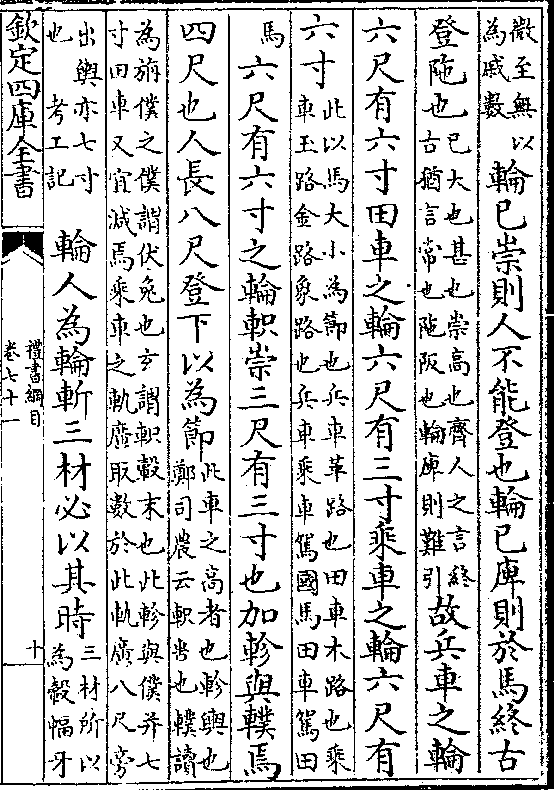 微至無以
為戚數
輪已崇則人不能登也輪已庳則於馬終古
登阤也
已大也甚也崇高也齊人之言終
古猶言常也阤阪也輪庳則難引
故兵車之輪
六尺有六寸田車之輪六尺有三寸乘車之輪六尺有
六寸
此以馬大小為節也兵車革路也田車木路也乘
車玉路金路象路也兵車乘車駕國馬田車駕田
馬
六尺有六寸之輪軹崇三尺有三寸也加軫與轐焉
四尺也人長八尺登下以為節
此車之高者也軫輿也
鄭司農云軹軎也轐讀
為旃僕之僕謂伏兔也玄謂軹轂末也此軫與僕并七
寸田車又宜減焉乘車之軌廣取數於此軌廣八尺旁
出輿亦七寸
也 考工記
輪人為輪斬三材必以其時
三材所以
為轂輻牙
欽定四庫全書
禮書綱目
卷七十一
十